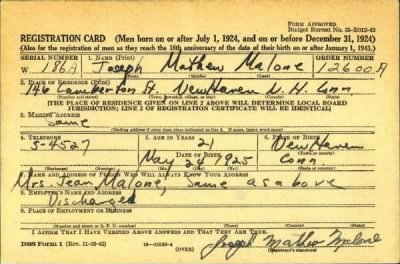 FORM APPROVED
REGISTRATION CARD (Men born on or after July 1, 1924, and on or before December 31, 1924)
(Also for the registration of men as they reach the 18th anniversary of the date of their birth on or after January 1, 1943.)
SERIAL NUMBER 1. NAME (Print) ORDER NUMBER
W 186A Joseph Mathew Malone 12600A
(First) (Middle) (Last)
2. PLACE OF RESIDENCE (Print)
146 Lamberton St. New Haven N. H. Conn
(Number and street) (Town, township, village, or city) (County) (State)
[THE PLACE OF RESIDENCE GIVEN ON LINE 2 ABOVE WILL DETERMINE LOCAL BOARD
JURISDICTION; LINE 2 OF REGISTRATION CERTIFICATE WILL BE IDENTICAL]
3. MAILING ADDRESS
Same
4. TELEPHONE 5. AGE IN YEARS 6. PLACE OF BIRTH
5-4527 21 New Haven
DATE OF BIRTH (Town or county)
May 24 1925 Conn
(Mo.) (Day) (Yr.) (State or country)
7. NAME AND ADDRESS OF PERSON WHO WILL ALWAYS KNOW YOUR ADDRESS
Mrs. Jean Malone, Same as above
8. EMPLOYER'S NAME AND ADDRESS
Discharged
9. PLACE OF EMPLOYMENT OR BUSINESS
I AFFIRM THAT I HAVE VERIFIED ABOVE ANSWERS AND THAT THEY ARE TRUE.
DSS Form 1 (OVER) Joseph Mathew Malone